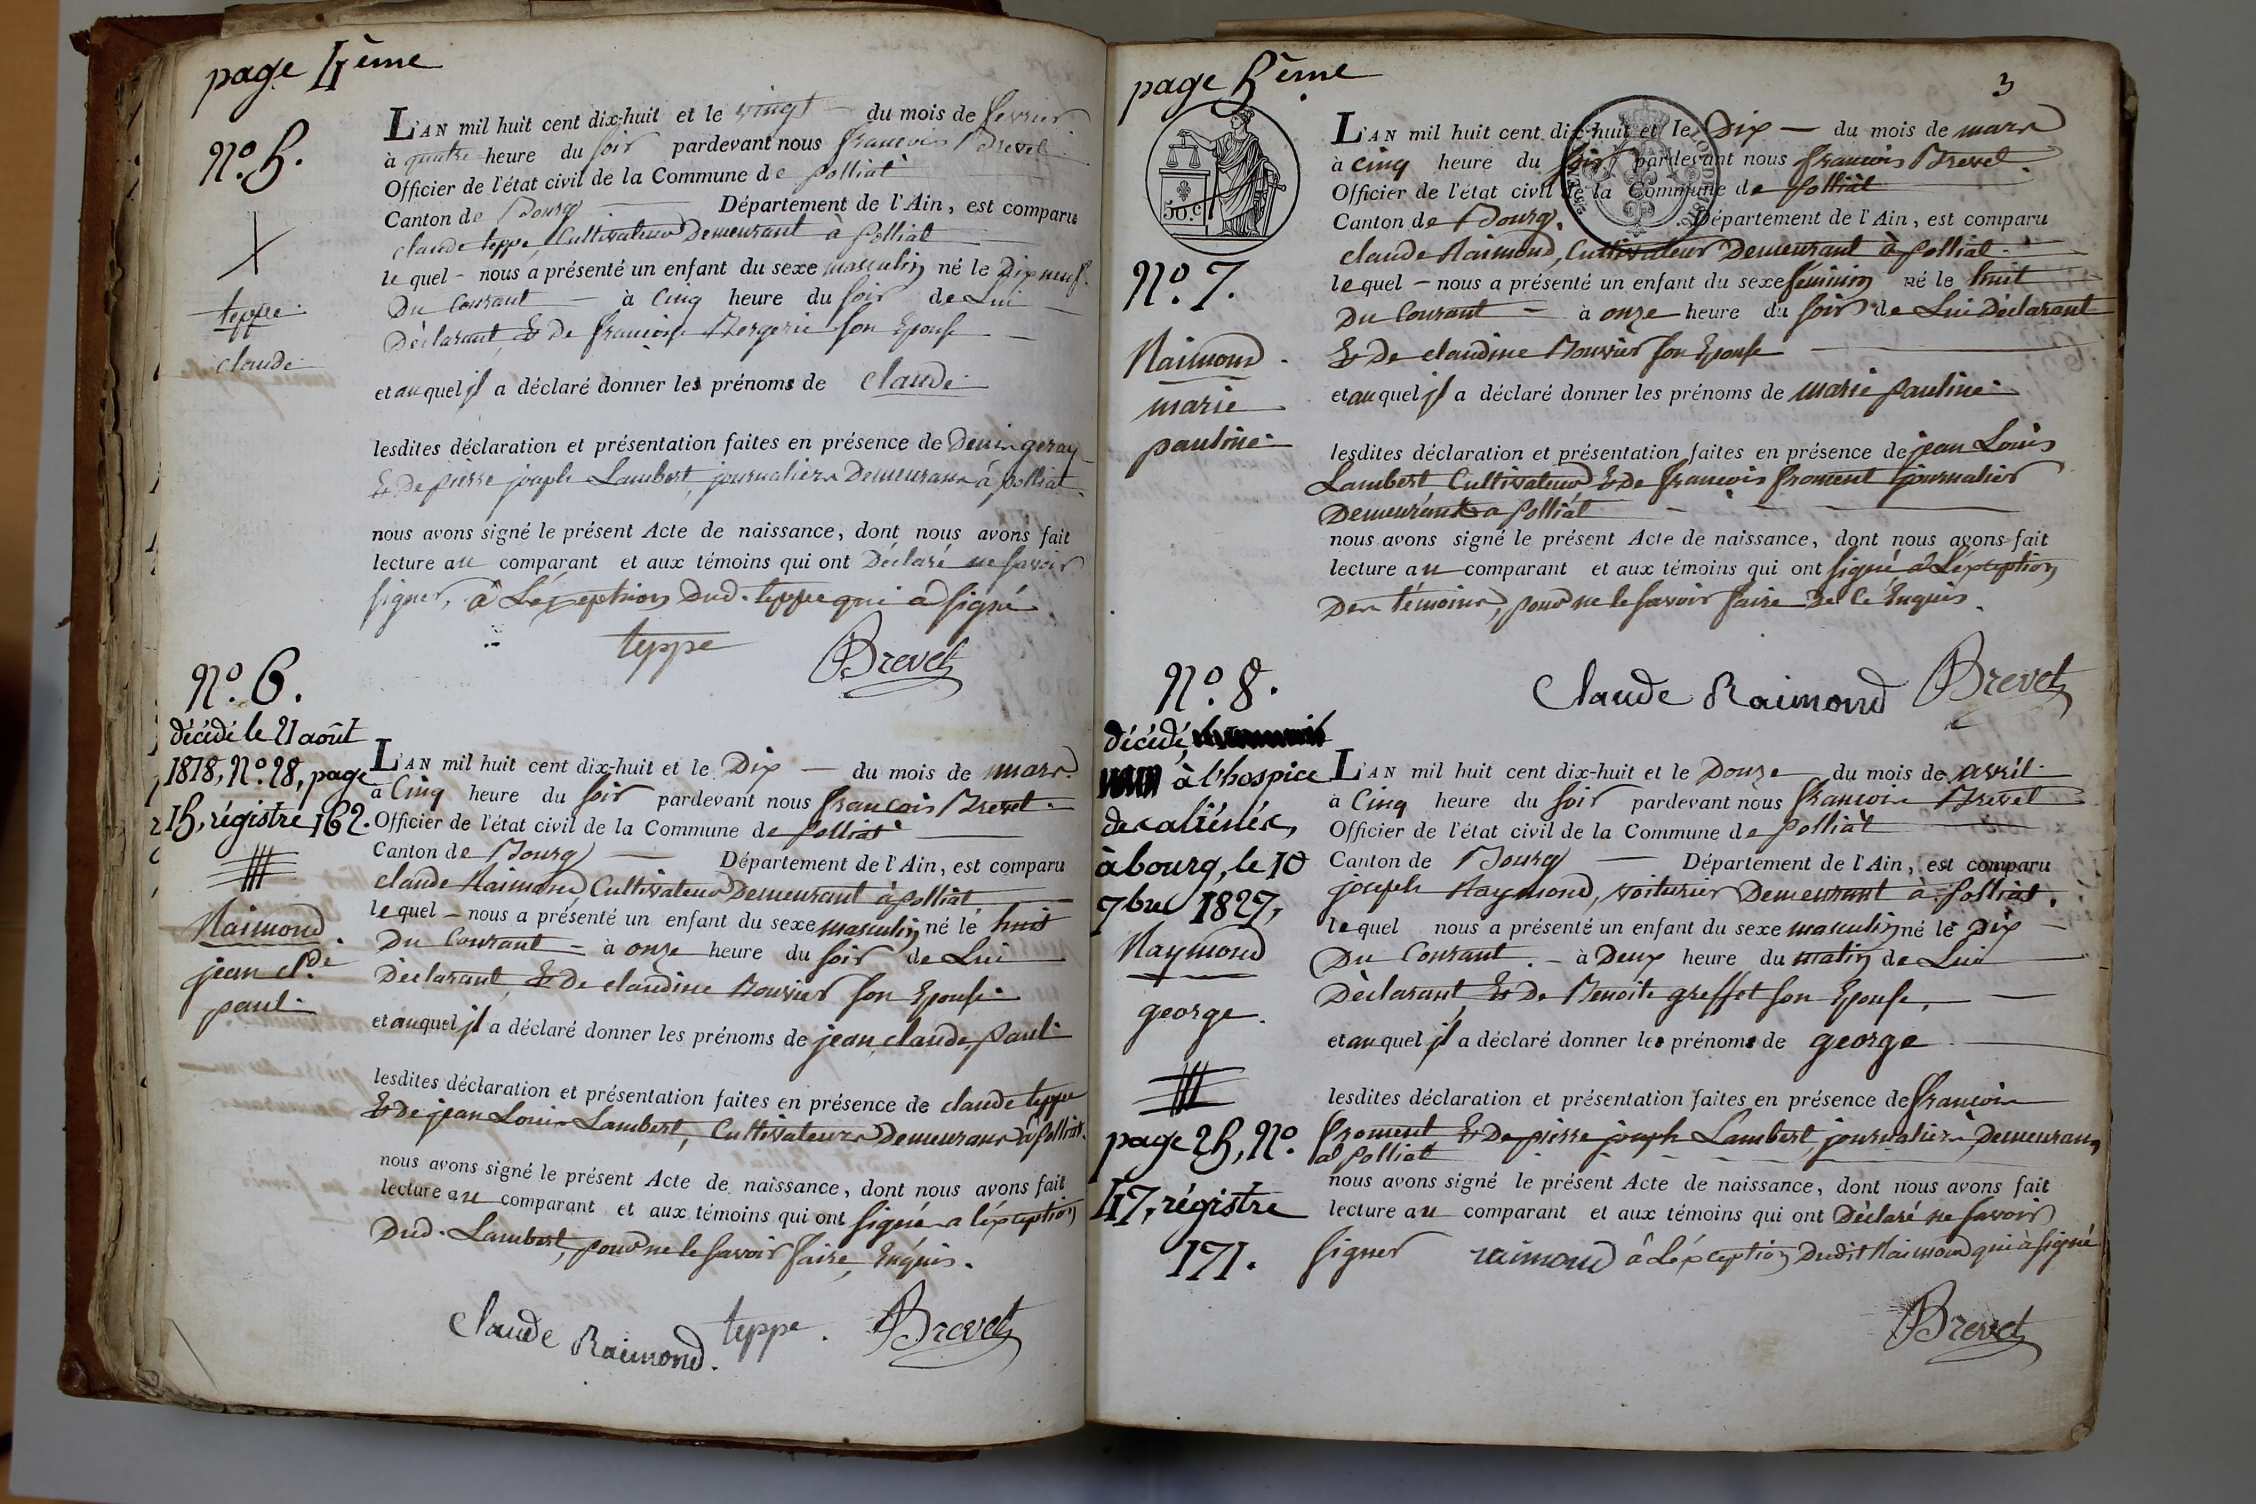 page 4ème
N.o 5.
teppe
claude
L'AN mil huit cent dix-huit et le vingt du mois de fevrier
à quatre heure du soir pardevant nous francois Brevet
Officier de l'état civil de la Commune de polliat
Canton de Bourg Département de l'Ain, est comparu
claude teppe, Cultivateur Demeurant à polliat
lequel nous a présenté un enfant du sexe masculin né le Dix neuf
Du Courant à Cinq heure du soir de Lui
Déclarant, & De francoise Bergerie son Epouse
et auquel il a déclaré donner les prénoms de claude
lesdites déclaration et présentation faites en présence de Denis geray
& De pierre joseph Lambert, journaliers Demeurans à polliat
nous avons signé le présent Acte de naissance, dont nous avons fait
lecture au comparant et aux témoins qui ont Déclaré ne savoir
signer, à L'éxception Dud. teppe qui à signé
teppe Brevet
N.o 6.
décédé le 21 août
1818, N.o 28, page
15, régistre 162.
Raimond
jean cl.de
paul
L'AN mil huit cent dix-huit et le Dix du mois de mars
à Cinq heure du soir pardevant nous francois Brevet
Officier de l'état civil de la Commune de polliat
Canton de Bourg Département de l'Ain, est comparu
claude Raimond, Cultivateur Demeurant à polliat
lequel nous a présenté un enfant du sexe masculin né le huit
Du Courant à onze heure du soir de Lui
Déclarant, & De claudine Bouvier son Epouse
et auquel il a déclaré donner les prénoms de jean, claude, paul
lesdites déclaration et présentation faites en présence de claude teppe
& De jean Louis Lambert, Cultivateurs Demeurans à polliat
nous avons signé le présent Acte de naissance, dont nous avons fait
lecture au comparant et aux témoins qui ont signé à l'éxception
Dud. Lambert, pour ne le savoir faire, Enquis.
Claude Raimond. teppe. Brevet
page 5ème
3
50.c
N.o 7.
Raimond
marie
pauline
L'AN mil huit cent dix-huit et le Dix du mois de mars
à cinq heure du soir pardevant nous francois Brevet
Officier de l'état civil de la Commune de polliat
Canton de Bourg. Département de l'Ain, est comparu
claude Raimond, Cultivateur Demeurant à polliat
lequel nous a présenté un enfant du sexe féminin né le huit
Du Courant à onze heure du soir de Lui Déclarant
& De claudine Bouvier son Epouse
et auquel il a déclaré donner les prénoms de marie pauline
lesdites déclaration et présentation faites en présence de jean Louis
Lambert Cultivateur & De francois froment journalier
Demeurants a polliat
nous avons signé le présent Acte de naissance, dont nous avons fait
lecture au comparant et aux témoins qui ont signé à L'éxception
Des témoins, pour ne le savoir faire de ce Enquis.
Claude Raimond Brevet
N.o 8.
décédé
à l'hospice
des aliénés,
à bourg, le 10
7bre 1827,
Raymond
george
page 25, N.o
47, régistre
171.
L'AN mil huit cent dix-huit et le Douze du mois de avril
à Cinq heure du soir pardevant nous francois Brevet
Officier de l'état civil de la Commune de polliat
Canton de Bourg Département de l'Ain, est comparu
joseph Raymond, voiturier Demeurant à polliat.
lequel nous a présenté un enfant du sexe masculin né le Dix
Du Courant à Deux heure du matin de Lui
Déclarant, & De Benoite greffet son Epouse,
et auquel il a déclaré donner les prénoms de george
lesdites déclaration et présentation faites en présence de francois
froment & De pierre joseph Lambert, journaliers, Demeurans
a polliat
nous avons signé le présent Acte de naissance, dont nous avons fait
lecture au comparant et aux témoins qui ont Déclaré ne savoir
signer raimond à L'éxception Dudit Raimond qui à signé
Brevet